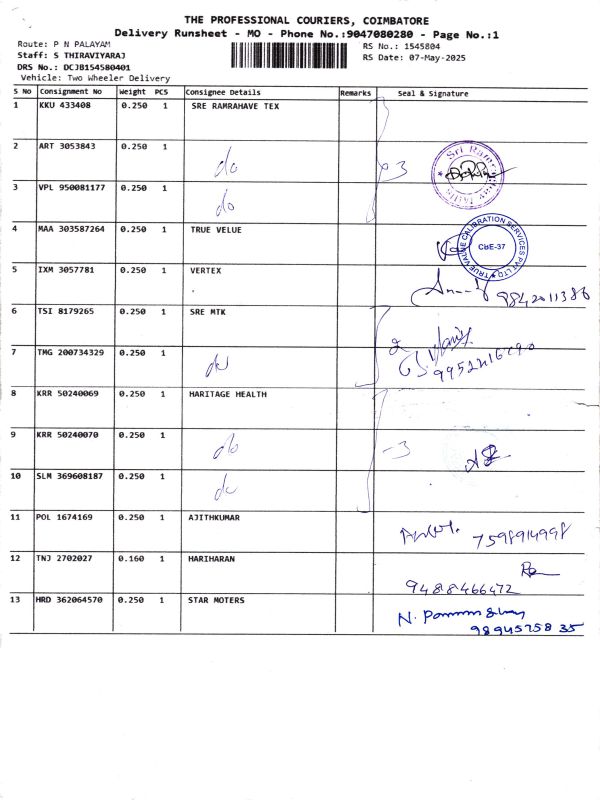 THE PROFESSIONAL COURIERS, COIMBATORE
Delivery Runsheet - MO - Phone No.:9047080280 - Page No.:1
Route: P N PALAYAM
RS No.: 1545804
Staff: S THIRAVIYARAJ
RS Date: 07-May-2025
DRS No.: DCJB154580401
Vehicle: Two Wheeler Delivery
S No Consignment No Weight PCS Consignee Details Remarks Seal & Signature
1 KKU 433408 0.250 1 SRE RAMRAHAVE TEX
2 ART 3053843 0.250 1 do 3
3 VPL 950081177 0.250 1 do
4 MAA 303587264 0.250 1 TRUE VELUE
TRUE VALUE CALIBRATION SERVICES PVT LTD
CBE-37
5 IXM 3057781 0.250 1 VERTEX
9842011386
6 TSI 8179265 0.250 1 SRE MTK
7 TMG 200734329 0.250 1 do 2
8 KRR 50240069 0.250 1 HARITAGE HEALTH
9 KRR 50240070 0.250 1 do -3
10 SLM 369608187 0.250 1 do
11 POL 1674169 0.250 1 AJITHKUMAR
7598914998
12 TNJ 2702027 0.160 1 HARIHARAN
9488466472
13 HRD 362064570 0.250 1 STAR MOTERS
N.
9894575835